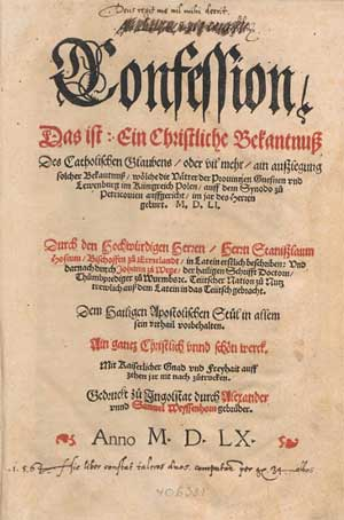 Deus regit me nil mihi deerit.
Confession/
Das ist: Ein Christliche Bekantnuß
Des Catholischen Glaubens/ oder vil mehr/ ain außlegung
solcher Bekantnuß/ wölche die Vätter der Prouintzien Gnesnen vnd
Lewenburg im Künigreich Polen/ auff dem Synodo zů
Petricouien auffgericht/ im jar des Herren
geburt. M. D. LI.
Durch den Hochwürdigen Herren/ Herrn Stanißlaum
Hosium/ Bischoffen zů Ermelande/ in Latein erstlich beschriben: Vnd
darnach durch Johann zů Wege/ der hailigen Schrifft Doctorn/
Thůmbprediger zů Wurmbs. Teütscher Nation zů Nutz
trewlich auß dem Latein in das Teütsch gebracht.
Dem Hailigen Apostolischen Stůl in allem
sein vrthail vorbehalten.
Ain gantz Christlich vnnd schön werck.
Mit Kaiserlicher Gnad vnd Freyhait auff
zehen jar nit nach zůtrucken.
Gedruckt zů Ingolstat durch Alexander
vnnd Samuel Weyssenhorn gebrüder.
Anno M. D. LX.
.1.5.6 Hic liber constat taleros duos.